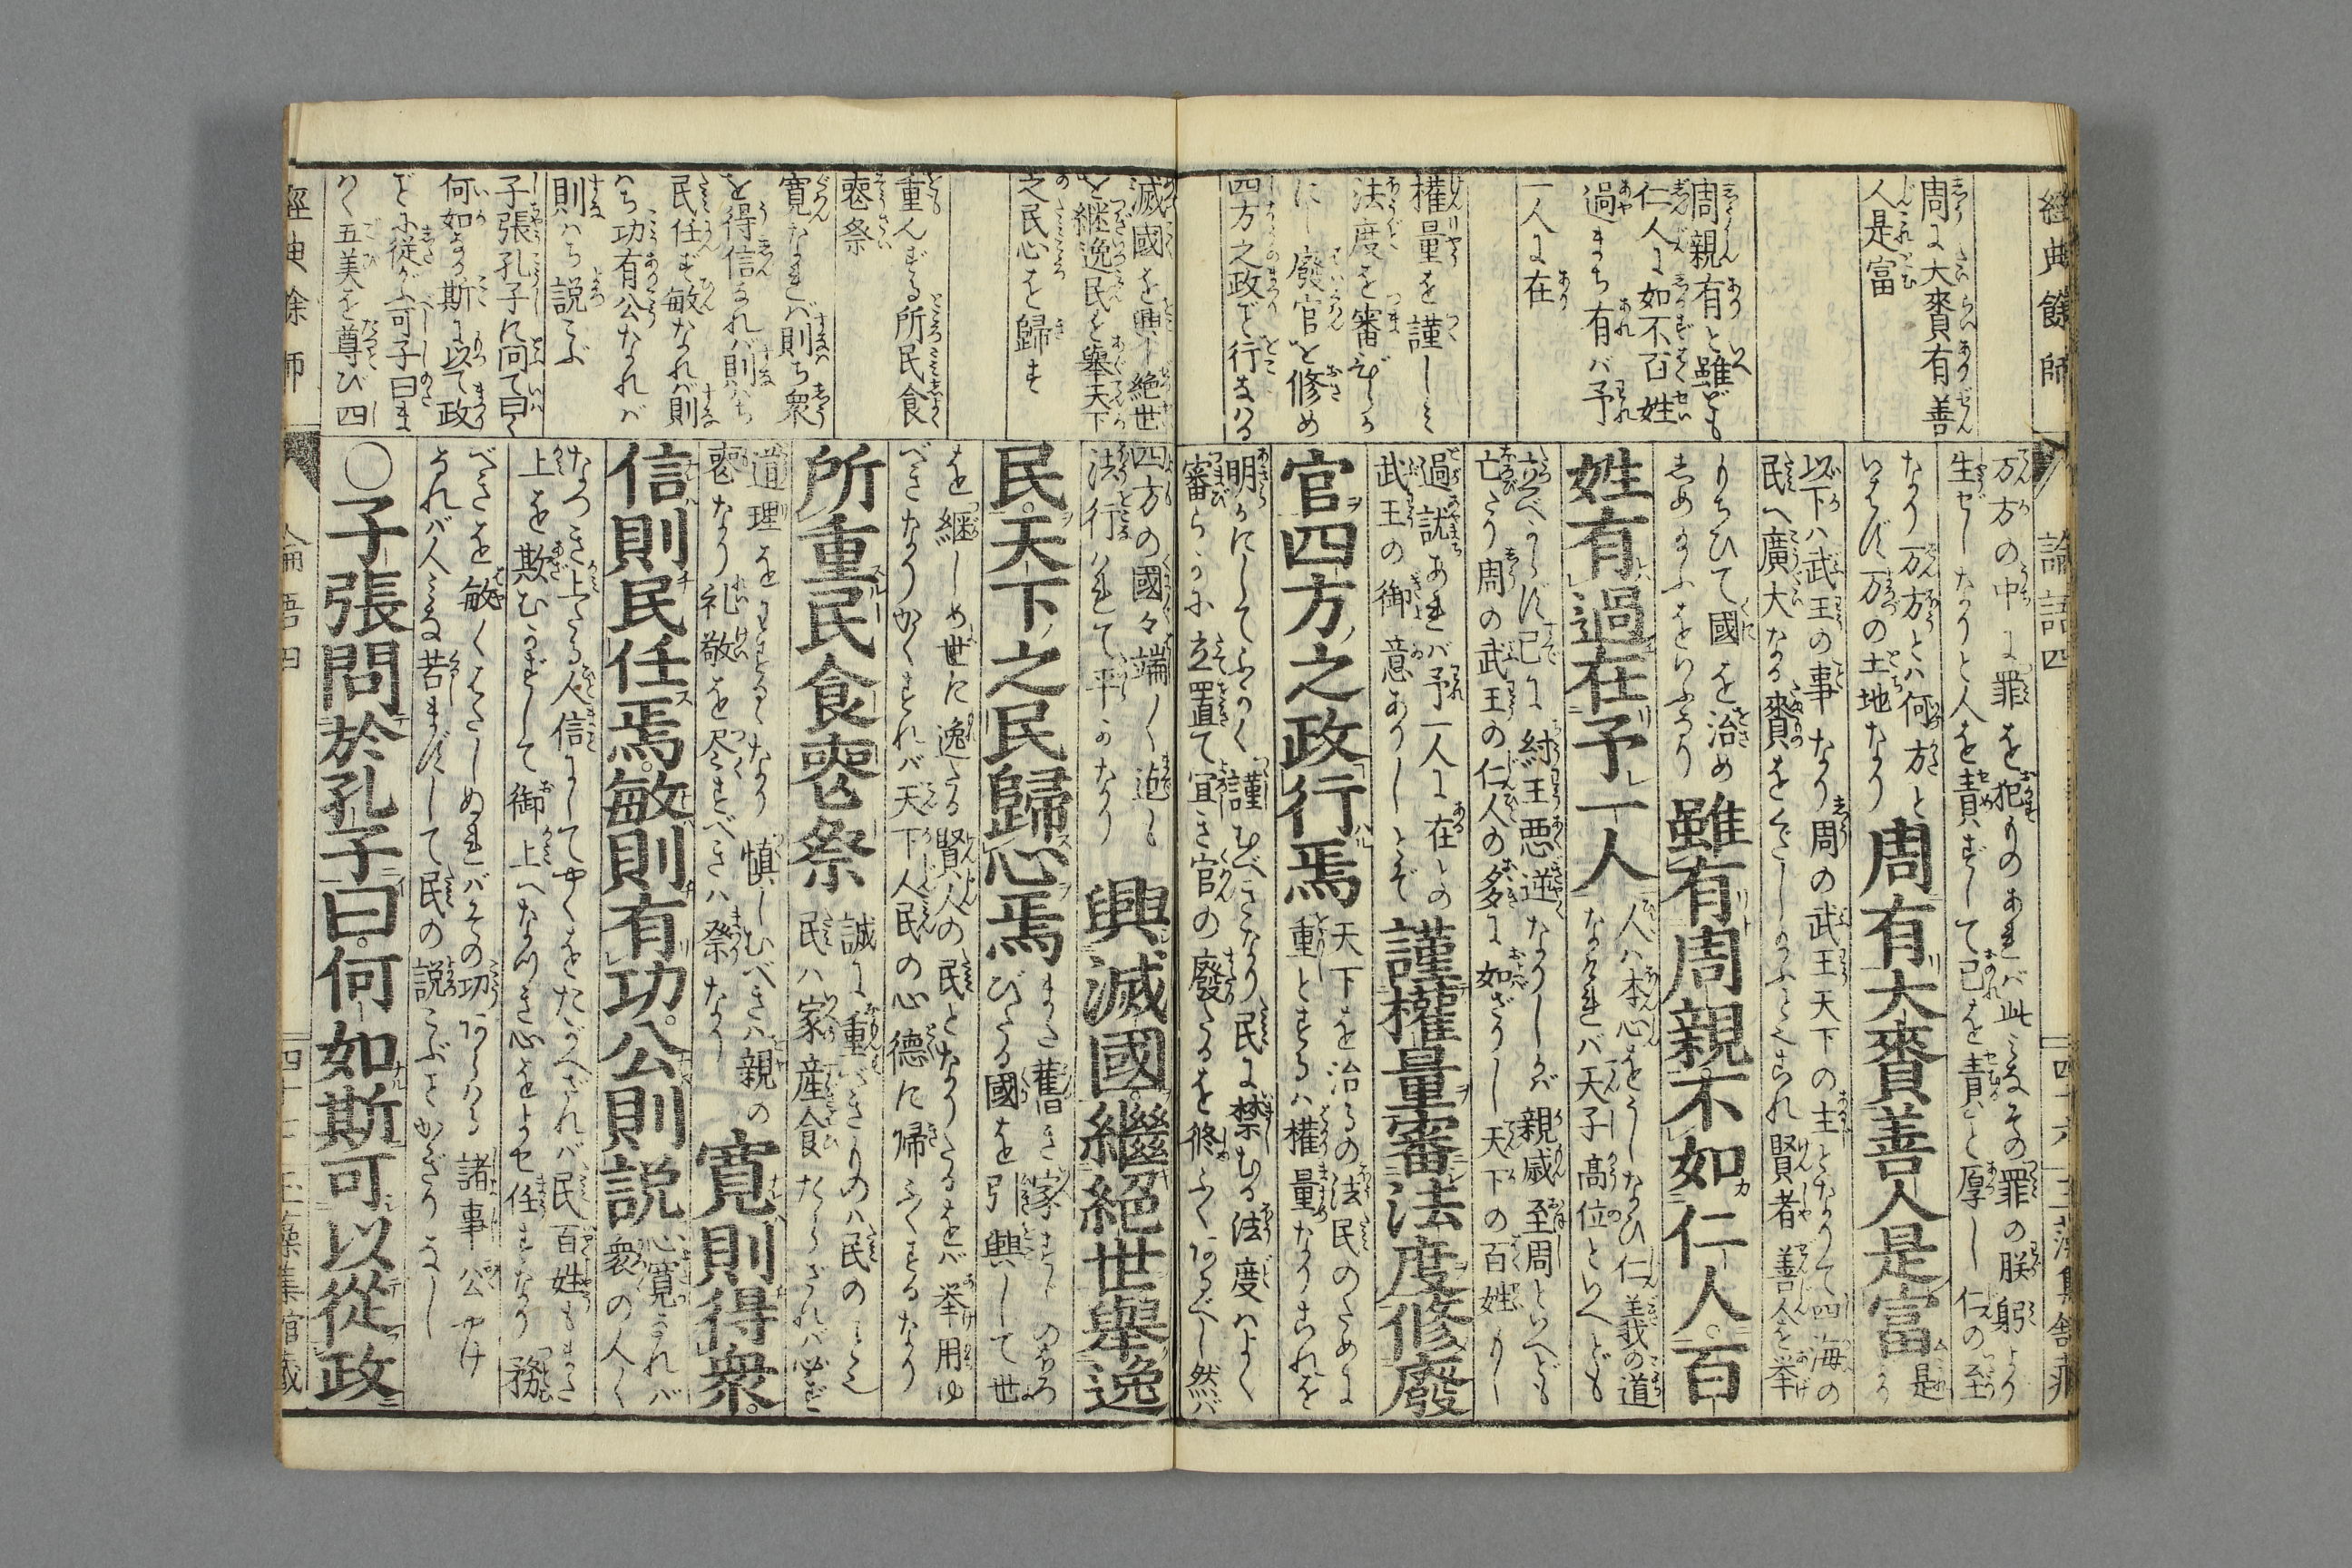 經典餘師
論語四
周に大賚有善
人是富
周親有と雖ども
仁人に如不百姓
過まち有バ予
一人に在
權量を謹しミ
法度を審
廢官を修め
四方之政ど行ハる
万方の中に罪を犯ものあれバ此みなその罪の朕躬より
生ぜしなりと人を責ずして己を責ること厚し仁の至
なり万方とハ何方と
いはず万の土地なり
周有大賚善人是富
以下ハ武王の事なり周の武王天下の主となりて四海の
民へ廣大なる賚をくだし
賢者善人を挙
もちひて國を治め
しめ
雖有周親不如仁人百
姓有過在予一人
人ハ本心をうしなひ仁義の道
なけれバ天子高位といへども
立べからず已に紂王悪逆なりしかバ親戚至周といへども
亡たり周の武王の仁人の多に如ざりし天下の百姓もし
過誤あれバ予一人に在との
武王の御意ありしとぞ
謹權量審法度修廢
官四方之政行焉
天下を治るの法民のために
重とするハ權量なりこれを
明かにしてふかく謹むべきなり民に禁むる法度ハよく
審らかに立置て宜き官の廢たるを修ふくあるべし然バ
滅國を興し絶世
を継逸民を舉天下
之民心を歸す
重んずる所民食
喪祭
寛なれバ則ち衆
を得信なれバ則ち
民任ず敏なれバ則
ハち功有公なれバ
則ハち説こぶ
子張孔子に问て曰く
何如なる斯に以て政
に從がふ可子曰ま
く五美を尊び四
四方の國々端〳〵迠も
法行ハれて平かなり
興滅國繼絕世舉逸
民天下之民歸心焉
また舊き家すじの
びたる國を引興して世
を継しめ世に逸たる賢人の民となりたるをバ挙用ゆ
べきなりかくすれバ天下人民の心德に帰ふくするなり
所重民食喪祭
誠に重ずべきものハ民のミ
民ハ家産食たらざれバ必ず
道理をわするゝなり慎しむべきハ親の
喪なり礼敬を尽すべきハ祭なり
寛則得衆
信則民任焉敏則有功公則説
心寛なれバ
衆の人〳〵
なつき上たる人信にしてやくをたがへざれバ民百姓もまた
上を欺むかずして御上へなつき心をよせ任すなり務
べきを敏くはたしぬれバその功あらハる諸事公やけ
なれバ人ミな苦まずして民の説こぶことかぎりなし
〇子張問於孔子曰何如斯可以從政
經典餘師
論語四